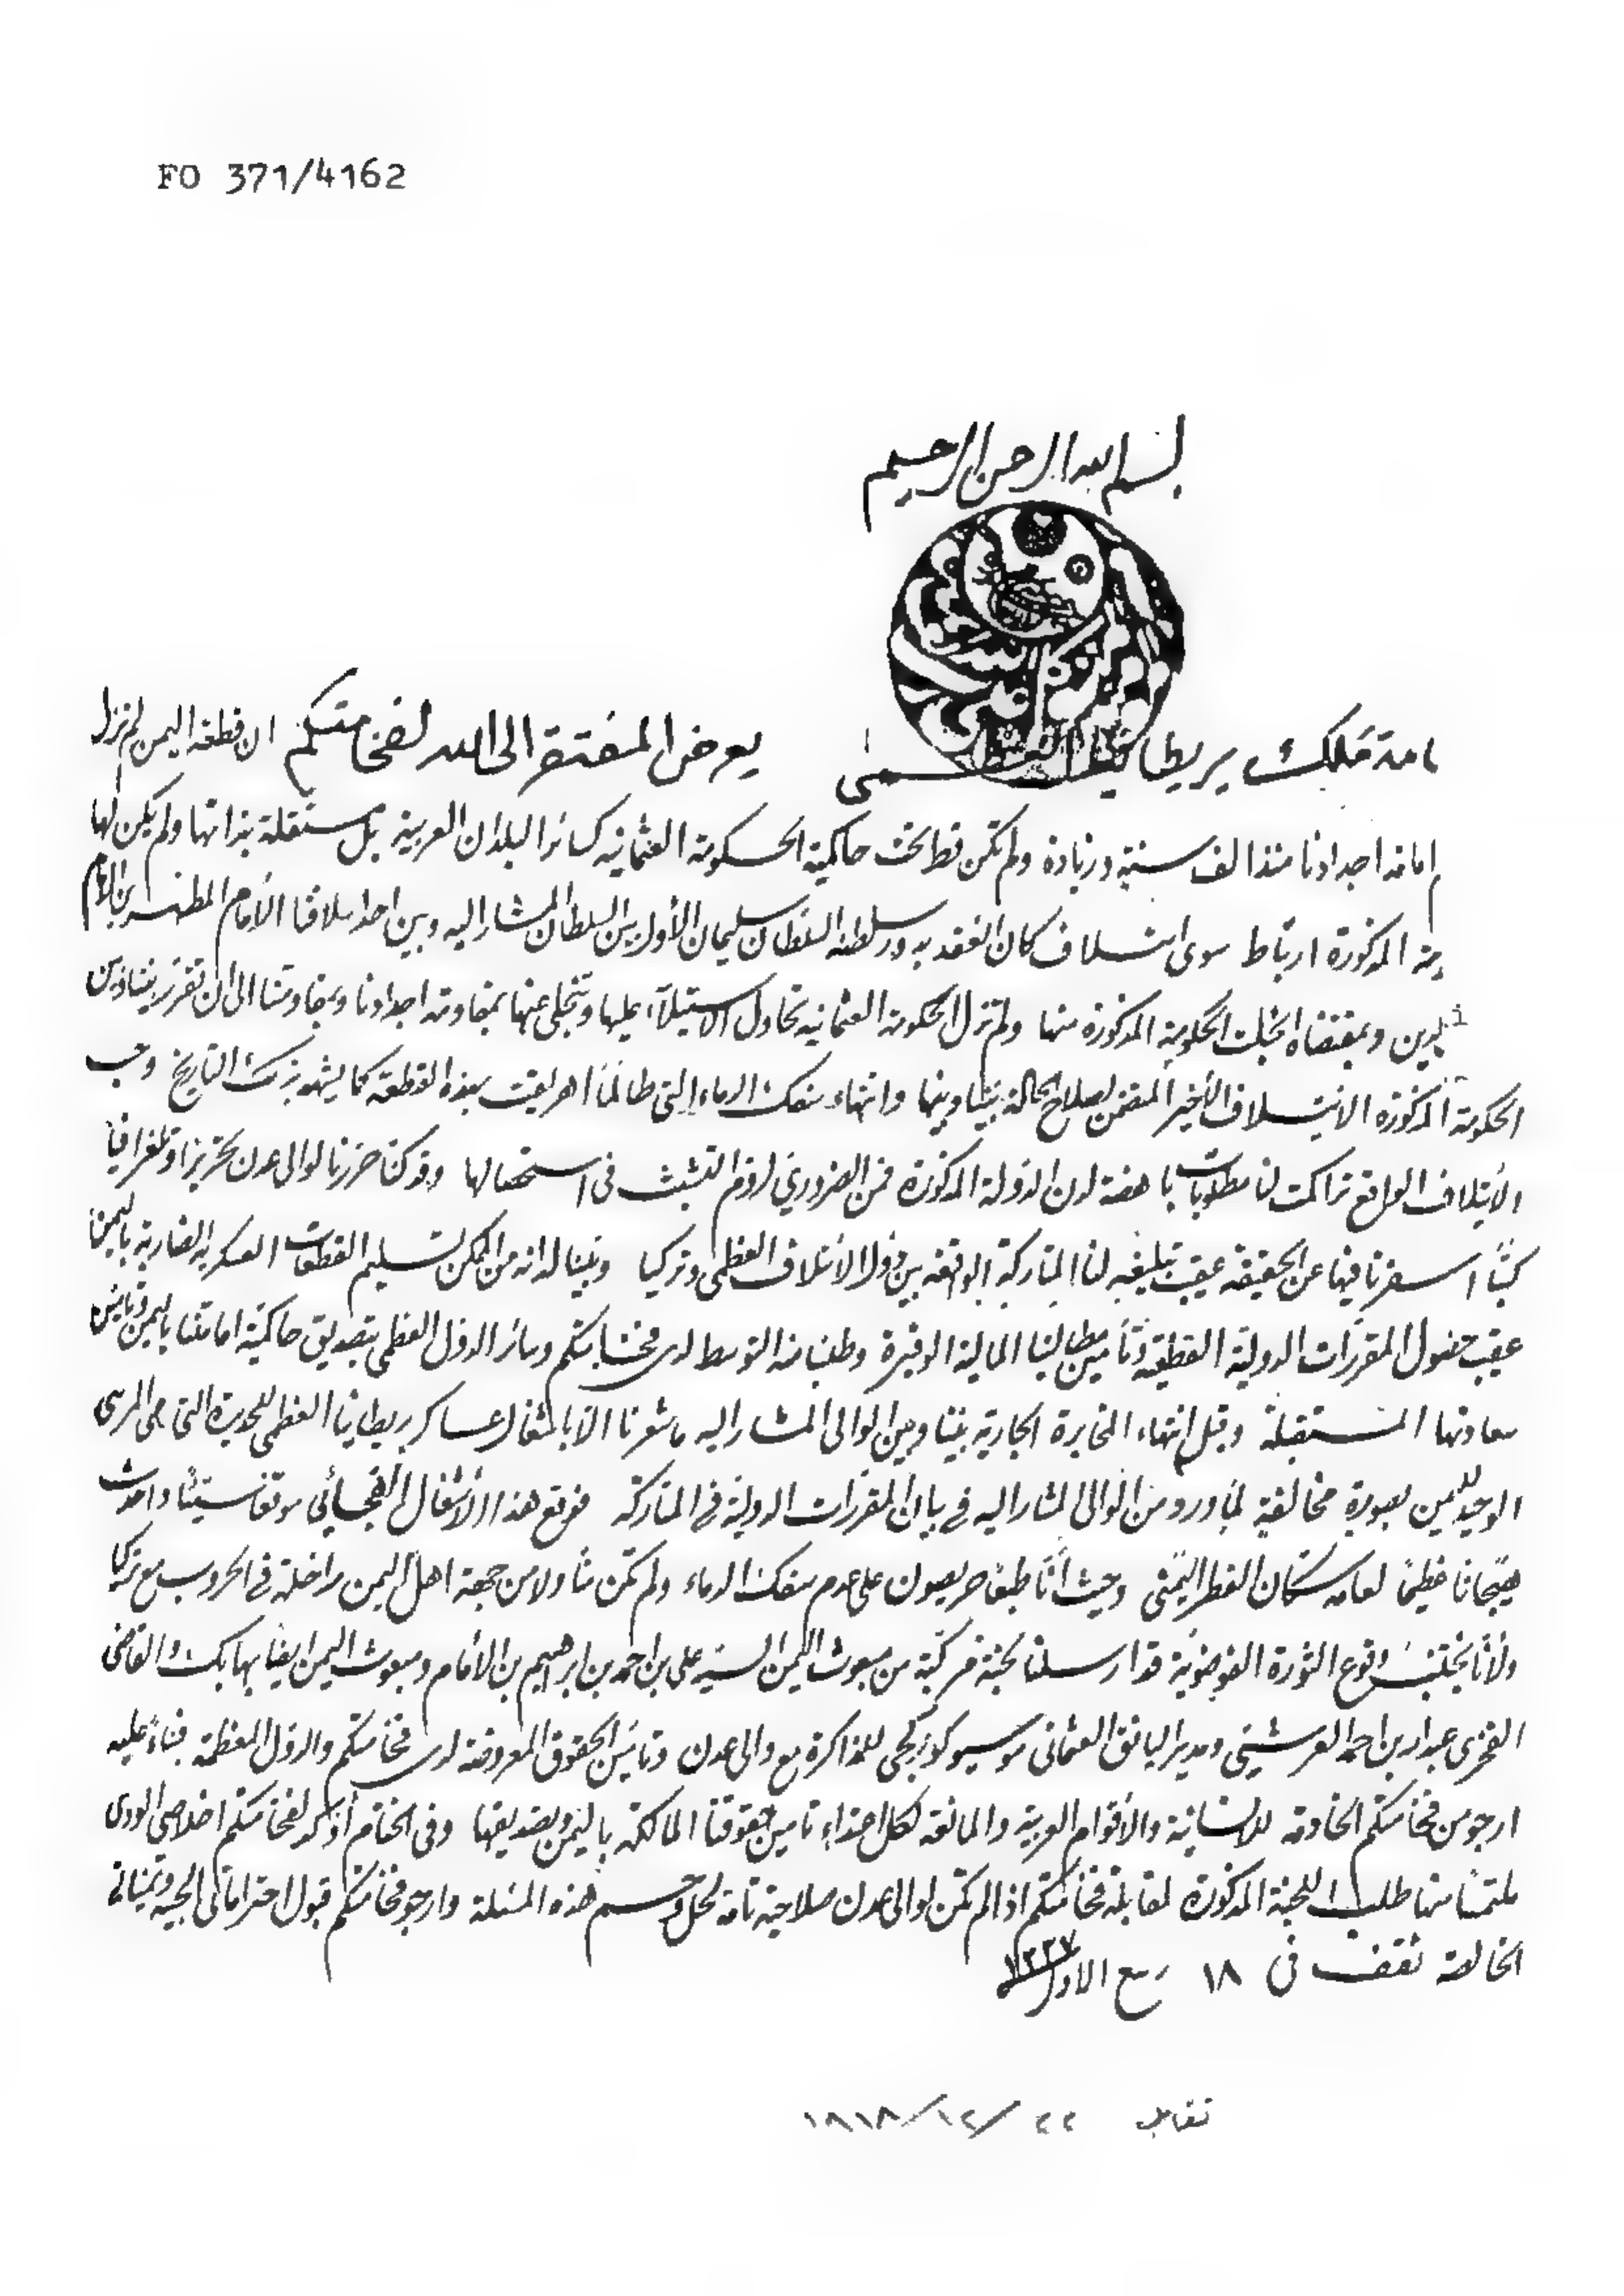 FO 371/4162
بسم الله الرحمن الرحيم
امة ملك بريطانيا العظمى يعرض المفتقر الى الله لفخامتكم ان قطعة اليمن لم تزل
امامة اجدادنا منذ الف سنة وزيادة ولم تكن قط تحت حاكمية الحكومة العثمانية كسائر البلدان العربية بل مستقلة بذاتها ولم يكن لها
المذكورة ارتباط سوى ائتلاف كان انعقد به دور سلطنة السلطان سليمان الأول بين السلطان المشار اليه وبين احد اسلافنا الأمام المطهر بن الامام
الدين وبمقتضاه انجلت الحكومة المذكورة منها ولم تزل الحكومة العثمانية تحاول الاستيلاء عليها وتنجلى عنها بمقاومة اجدادنا وبمقاومتنا الى ان تقرر بيننا وبين
الحكومة المذكورة الائتلاف الأخير المتضمن لصلاح الحالة بيننا وبينها وانتهاء سفك الدماء التى طالما اهريقت بهذه القطعة كما يشهد بذلك التاريخ وحسب
الائتلاف الواقع تراكمت لنا مطلوبات باهضة لدن الدولة المذكورة فمن الضروري لزوم التشبث فى استحصالها وقد كنا حررنا لوالى عدن تحريرا وتلغرافيا
كتبًا اسفرنا فيها عن الحقيقة عقيب تبليغه لنا المتاركة الواقعة بين دول الائتلاف العظمى وتركيا وبينا له انه من الممكن تسليم القطعات العسكرية العثمانية باليمن
عقيب حصول المقررات الدولية القطعية وتأمين مطالبنا المالية الوفيرة وطلبنا منه التوسط لدى فخامتكم وسائر الدول العظمى بتصديق حاكمية امامتنا باليمن وتأمين
سعادتها المستقبلة وقبل انتهاء المخابرة الجارية بيننا وبين الوالى المشار اليه ما شعرنا الا باشغال عساكر بريطانيا العظمى للحديدة التى هى المرسى
الوحيد لليمن بصورة مخالفة لما ورد من الوالى المشار اليه في بيان المقررات الدولية في المتاركة فوقع هذا الاشغال الفجائي موقعا سيئا واحدث
هيجانا عظيما لعامة سكان القطر اليمنى وحيث أنّا طبعًا حريصون على عدم سفك الدماء ولم تكن منا ولا من جهة اهل اليمن مداخلة في الحروب مع تركيا
ولأنّا نجتنب وقوع الثورة الفوضوية قد ارسلنا لجنة مركبة من مبعوث اليمن السيد على بن احمد بن ابراهيم بن الأمام ومبعوث اليمن ايضا بها بك والقاضى
الفخرى عبدالله بن احمد العرشي ومدير البانق العثمانى موسيو كوركجى للمذاكرة مع والى عدن وتأمين الحقوق المعروضة لدى فخامتكم والدول المعظمة فبناءً عليه
ارجو من فخامتكم الخادمة للانسانية والأقوام العربية والمانعة لكل اعتداء تأمين حقوقنا المالكة باليمن وتصديقها وفى الختام أؤكد لفخامتكم اخلاصى الودى
ملتمسًا منها طلب اللجنة المذكورة لمقابلة فخامتكم اذا لم تكن لوالى عدن صلاحية تامة لحل وحسم هذه المسئلة وارجو فخامتكم قبول احتراماتى الحبية وتمنياتى
الخالصة تقف فى ١٨ ربيع الاول ١٣٣٧
تقابل ٢٢/١٢/١٩١٨